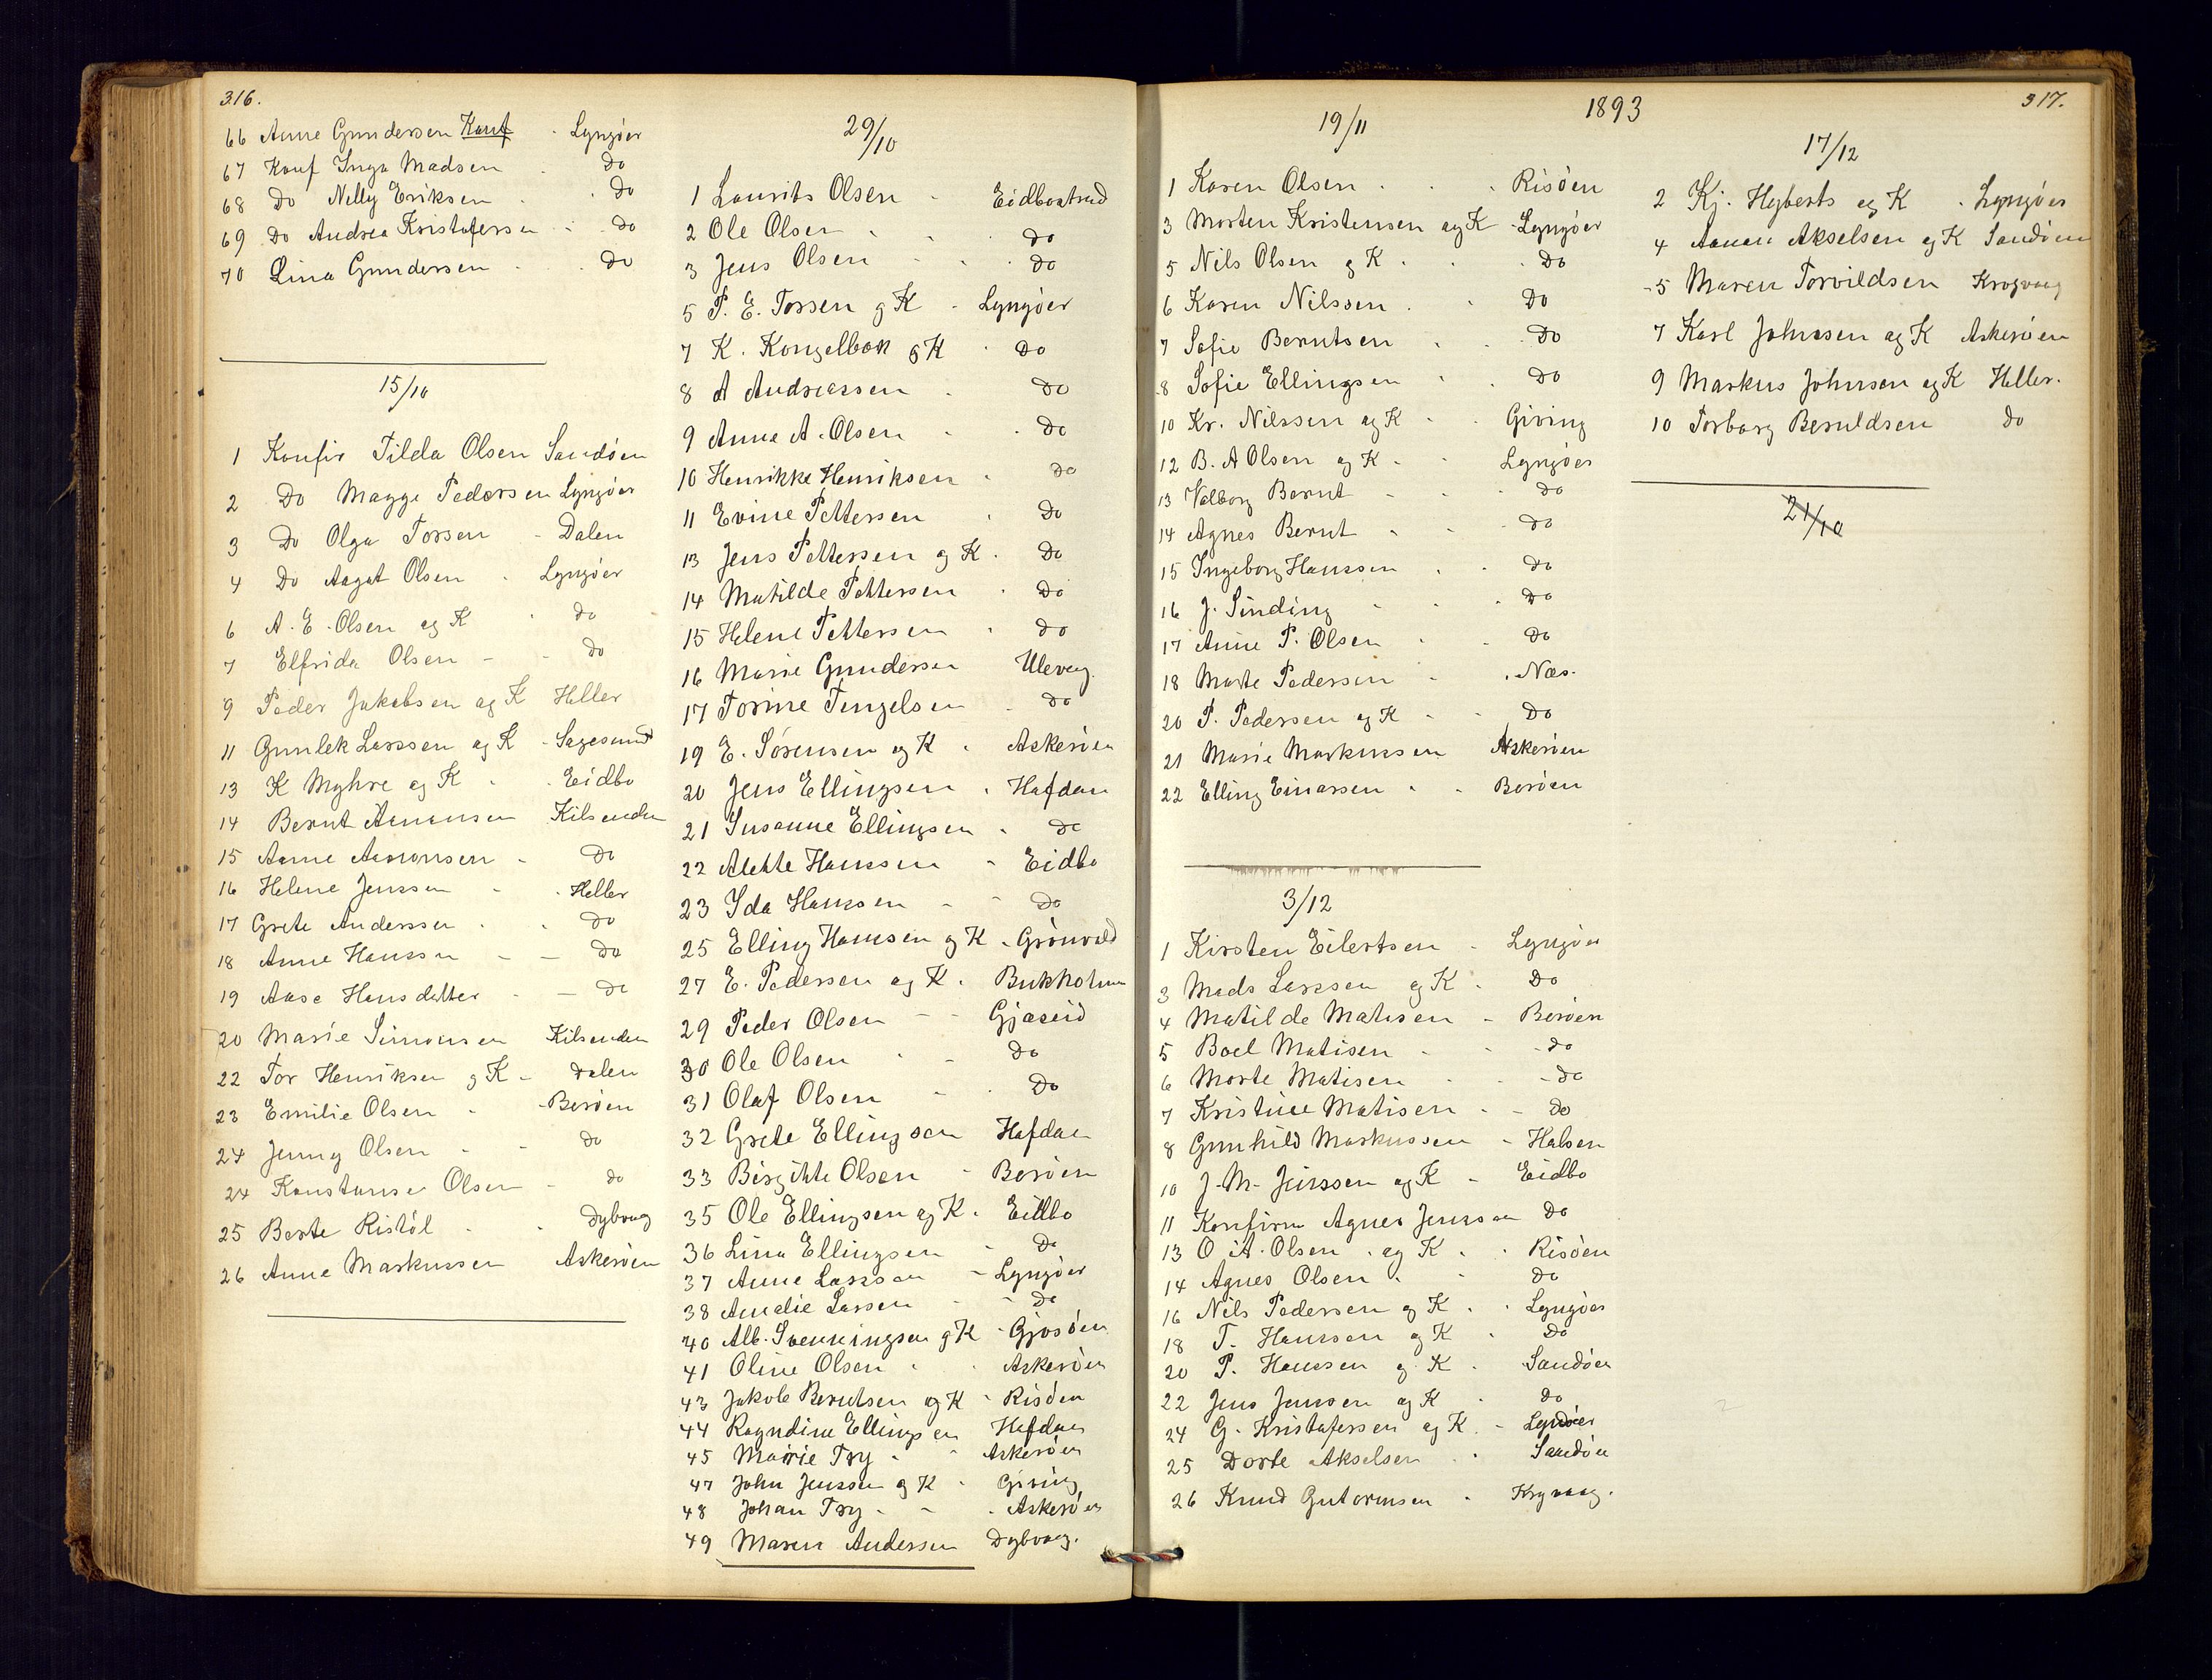 316.
66 Anne Gundersen Konf - Lyngöer
67 Konf Inga Madsen Do
68 Do Nelly Eriksen Do
69 Do Andrea Kristofersen Do
70 Lina Gundersen Do
15/10
1 Konfir Tilda Olsen Sandöen
2 Do Magge Pedersen Lyngöer
3 Do Olga Torsen - Dalen
4 Do Aagot Olsen - Lyngöer
6 A. E. Olsen og K Do
7 Elfrida Olsen - Do
9 Peder Jakobsen og K Heller
11 Gunlek Larssen og K - Sagesund
13 K Myhre og K Eidbo
14 Bernt Aanonsen Kilsenden
15 Anne Aanonsen - Do
16 Helene Jenssen - Heller
17 Grete Anderssen Do
18 Anne Hanssen - - Do
19 Aase Hansdatter - Do
20 Marie Simonsen Kilsenden
22 Tor Henriksen og K - Dalen
23 Emilie Olsen - Boröen
24 Jenny Olsen Do
24 Konstanse Olsen - Do
25 Berte Ristöl Dybvaag
26 Anne Markussen Askeröen
29/10
1 Laurits Olsen - Eidbostrand
2 Ole Olsen Do
3 Jens Olsen Do
5 P. E. Torsen og K - Lyngöer
7 K. Kongelbæk og K Do
8 A Andreassen Do
9 Anne A. Olsen Do
10 Henrikke Henriksen Do
11 Evine Pettersen Do
13 Jens Pettersen og K. Do
14 Matilde Pettersen Do
15 Helene Pettersen Do
16 Marie Gundersen Ulevag
17 Torine Tengelsen Do
19 E. Sörensen og K Askeröen
20 Jens Ellingsen Hafdan
21 Susanne Ellingsen Do
22 Alette Hanssen - Eidbo
23 Ida Hanssen - Do
25 Elling Hansen og K - Grönvold
27 E. Pedersen og K. Bukholmen
29 Peder Olsen - Gjæseid
30 Ole Olsen Do
31 Olaf Olsen Do
32 Grete Ellingsen Hafdan
33 Birgitte Olsen - Boröen
35 Ole Ellingsen og K. Eidbo
36 Lina Ellingsen Do
37 Anne Larssen - Lyngöer
38 Amalie Larsen Do
40 Alb. Svenningsen og K - Gjesöen
41 Oline Olsen Askeröen
43 Jakob Berntsen og K - Risöen
44 Ragndine Ellingsen Hafdan
45 Marie Try Askeröen
47 John Jenssen og K Giving
48 Johan Try - Askeröen
49 Maren Andersen Dybvaag.
1893
317.
19/11
1 Karen Olsen Risöen
3 Morten Kristensen og K - Lyngöer
5 Nils Olsen og K Do
6 Karen Nilssen Do
7 Sofie Berntsen Do
8 Sofie Ellingsen Do
10 Kr. Nilssen og K Giving
12 B. A Olsen og K - Lyngöer
13 Valborg Bernt - Do
14 Agnes Bernt Do
15 Ingeborg Hanssen Do
16 J. Sinding Do
17 Anne P. Olsen Do
18 Marte Pedersen - Næs.
20 P. Pedersen og K - Do
21 Marie Markussen Askeröen
22 Elling Einarsen Boröen
3/12
1 Kirsten Eilertsen - Lyngöer
3 Mads Larssen og K Do
4 Matilde Matisen - Boröen
5 Boel Matisen - Do
6 Morte Matisen - Do
7 Kristine Matisen - Do
8 Gunhild Markussen - Halsen
10 J. M. Jenssen og K - Eidbo
11 Konfirm Agnes Jenssen Do
13 O. A. Olsen og K Risöen
14 Agnes Olsen Do
16 Nils Pedersen og K Lyngöer
18 T. Hanssen og K Do
20 P. Hanssen og K Sandöen
22 Jens Jenssen og K Do
24 G. Kristofersen og K - Lyngöer
25 Dorte Akselsen Sandöen
26 Knud Gutormsen Krogvaag.
17/12
2 Kj. Hyberts og K Lyngöer
4 Aanen Akselsen og K Sandöen
5 Maren Torvildsen Krogvaag
7 Karl Johnsen og K Askeröen
9 Markus Johnsen og K Heller.
10 Torborg Beruldsen Do
21/10